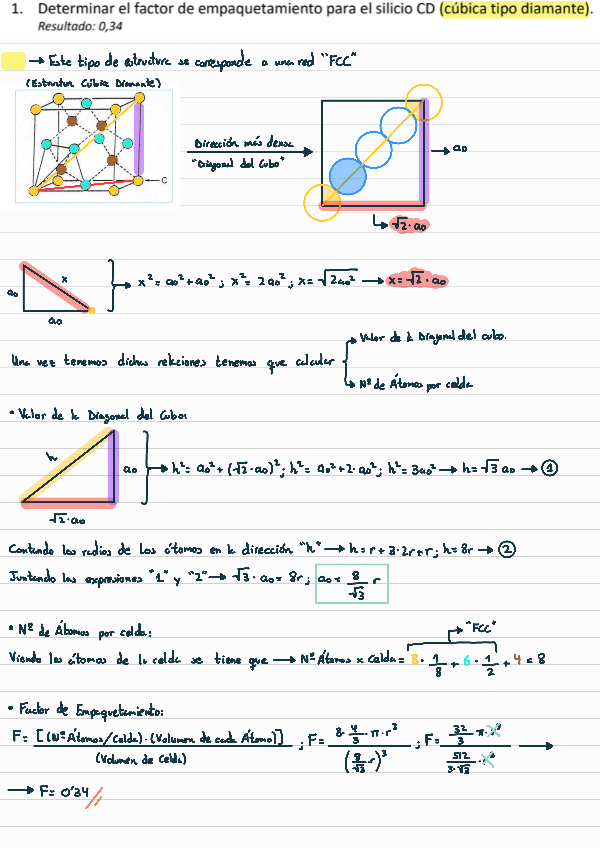 1. Determinar el factor de empaquetamiento para el silicio CD (cúbica tipo diamante).
Resultado: 0,34
→ Este tipo de estructura se corresponde a una red "FCC"
(Estructura Cúbica Diamante)
Dirección más densa
"Diagonal del Cubo"
a₀
C
√2·a₀
a₀
x
a₀
x² = a₀² + a₀² ; x² = 2a₀² ; x = √2a₀² → x = √2·a₀
Una vez tenemos dichas relaciones tenemos que calcular
Valor de la Diagonal del cubo.
Nº de Átomos por celda
• Valor de la Diagonal del Cubo:
h
a₀
√2·a₀
h² = a₀² + (√2·a₀)² ; h² = a₀² + 2·a₀² ; h² = 3a₀² → h = √3 a₀ → ①
Contando los radios de los átomos en la dirección "h" → h = r + 3·2r + r ; h = 8r → ②
Juntando las expresiones "1" y "2" → √3·a₀ = 8r ; a₀ = 8/√3 r
• Nº de Átomos por celda:
"FCC"
Viendo los átomos de la celda se tiene que → Nº Átomos x Celda = 8·1/8 + 6·1/2 + 4 = 8
• Factor de Empaquetamiento:
F = [(Nº Átomos/Celda)·(Volumen de cada Átomo)]/(Volumen de Celda) ; F = 8·4/3·π·r³/(8/√3 r)³ ; F = 32/3 π·r³/512/3·√3·r³ →
→ F = 0'34